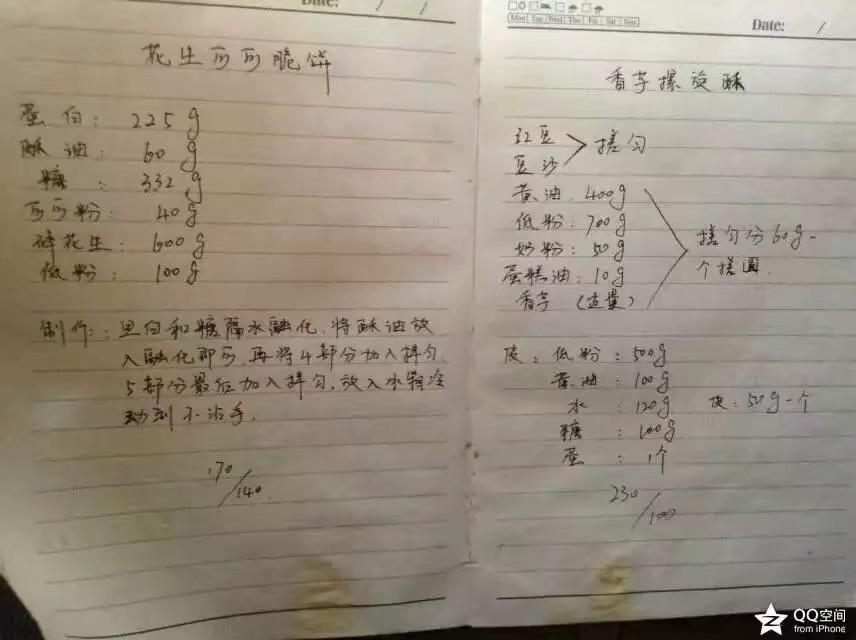 Date: / /
花生可可脆饼
蛋白: 225g
酥油: 60g
糖: 332g
可可粉: 40g
碎花生: 600g
低粉: 100g
制作: 蛋白和糖隔水融化.将酥油放
入融化即可.再将4部分加入拌匀.
5部分最后加入拌匀.放入冰箱冷
动到不沾手.
170/140.
Mon Tue Wed Thu Fri Sat Sun
Date: /
香芋螺旋酥
红豆
豆沙 > 搓匀
黄油. 400g
低粉: 700g
奶粉: 50g
蛋糕油: 10g
香芋 (适量)
搓匀分60g一
个搓圆.
皮: 低粉: 500g
黄油: 100g
水: 120g 皮: 50g一个
糖: 100g
蛋: 1个
230/100
QQ空间
from iPhone